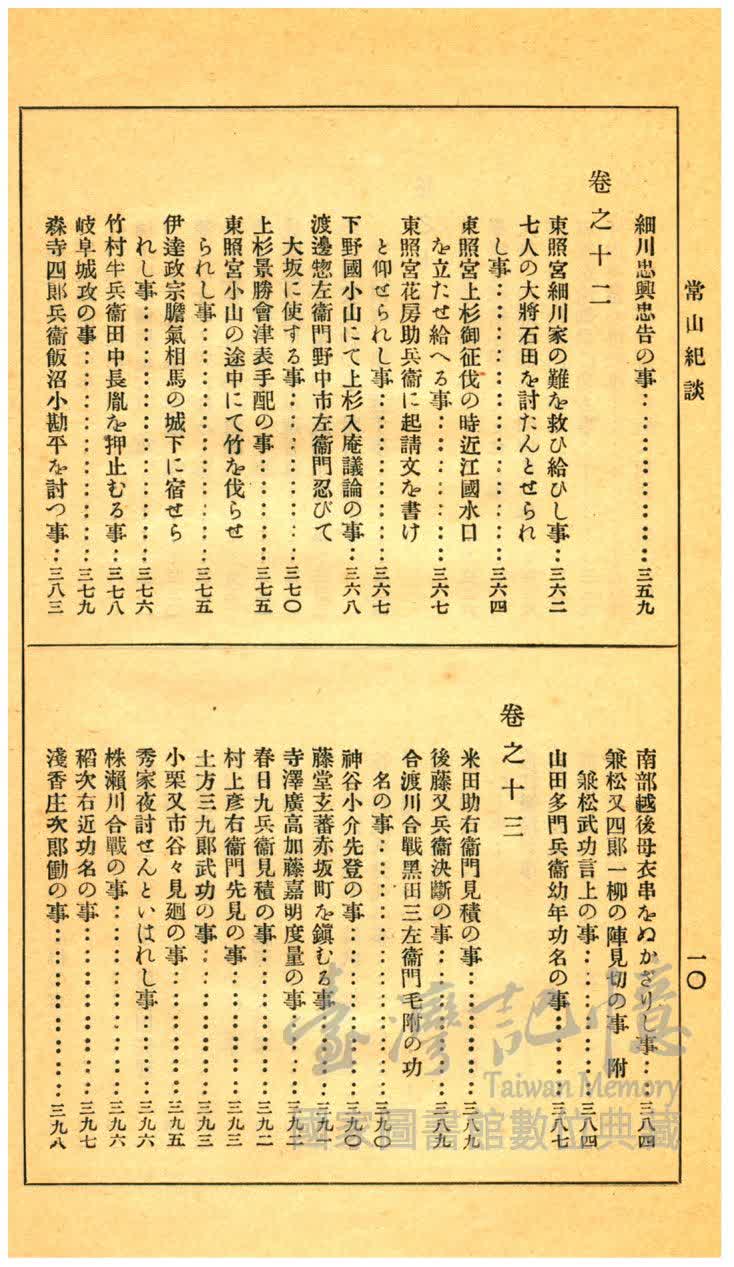 常山紀談
一〇
細川忠興忠告の事：：：：：：：：：三五九
卷之十二
東照宮細川家の難を救ひ給ひし事：：三六二
七人の大將石田を討たんとせられ
し事：：：：：：：：：：：：三六四
東照宮上杉御征伐の時近江國水口
を立たせ給へる事：：：：：：：三六七
東照宮花房助兵衞に起請文を書け
と仰せられし事：：：：：：：：三六七
下野國小山にて上杉入庵議論の事：：三六八
渡邊惣左衞門野中市左衞門忍びて
大坂に使する事：：：：：：：：三七〇
上杉景勝會津表手配の事：：：：：三七五
東照宮小山の途中にて竹を伐らせ
られし事：：：：：：：：：：三七五
伊達政宗膽氣相馬の城下に宿せら
れし事：：：：：：：：：：：三七六
竹村半兵衞田中長胤を押止むる事：：三七八
岐阜城攻の事：：：：：：：：：三七九
森寺四郞兵衞飯沼小勘平を討つ事：：三八三
南部越後母衣串をぬかざりし事：：：三八四
兼松又四郞一柳の陣見切の事　附
兼松武功言上の事：：：：：：：三八四
山田多門兵衞幼年功名の事：：：：三八七
卷之十三
米田助右衞門見積の事：：：：：：三八九
後藤又兵衞決斷の事：：：：：：：三八九
合渡川合戰黑田三左衞門毛附の功
名の事：：：：：：：：：：：三九〇
神谷小介先登の事：：：：：：：：三九〇
藤堂玄蕃赤坂町を鎭むる事：：：：三九一
寺澤廣高加藤嘉明度量の事：：：：三九二
春日九兵衞見積の事：：：：：：：三九二
村上彥右衞門先見の事：：：：：：三九三
土方三九郞武功の事：：：：：：：三九三
小栗又市谷々見廻の事：：：：：：三九五
秀家夜討せんといはれし事：：：：三九六
株瀨川合戰の事：：：：：：：：：三九六
稻次右近功名の事：：：：：：：：三九七
淺香庄次郞働の事：：：：：：：：三九八
臺灣記憶
Taiwan Memory
國家圖書館數位典藏